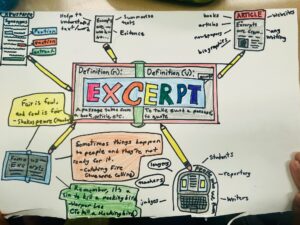 Synonyms
Portion
Section
Extract
Help to
understand
text/word
Summarise
texts
Evidence
books
articles
newspapers
biographies
ARTICLE
Excerpts
are from...
websites
any
writing
Definition (n):
Definition (v):
EXCERPT
A passage taken from
a book, article, etc.
To take such a passage
to quote
Fair is foul,
and foul is fair.
-Shakespeare
Sometimes things happen
to people and they're not
ready for it.
-Catching Fire
(Suzanne Collins)
Remember, it's a
sin to kill a mockingbird
(To Kill a Mockingbird)
teachers
judges
Students
reporters
Writers